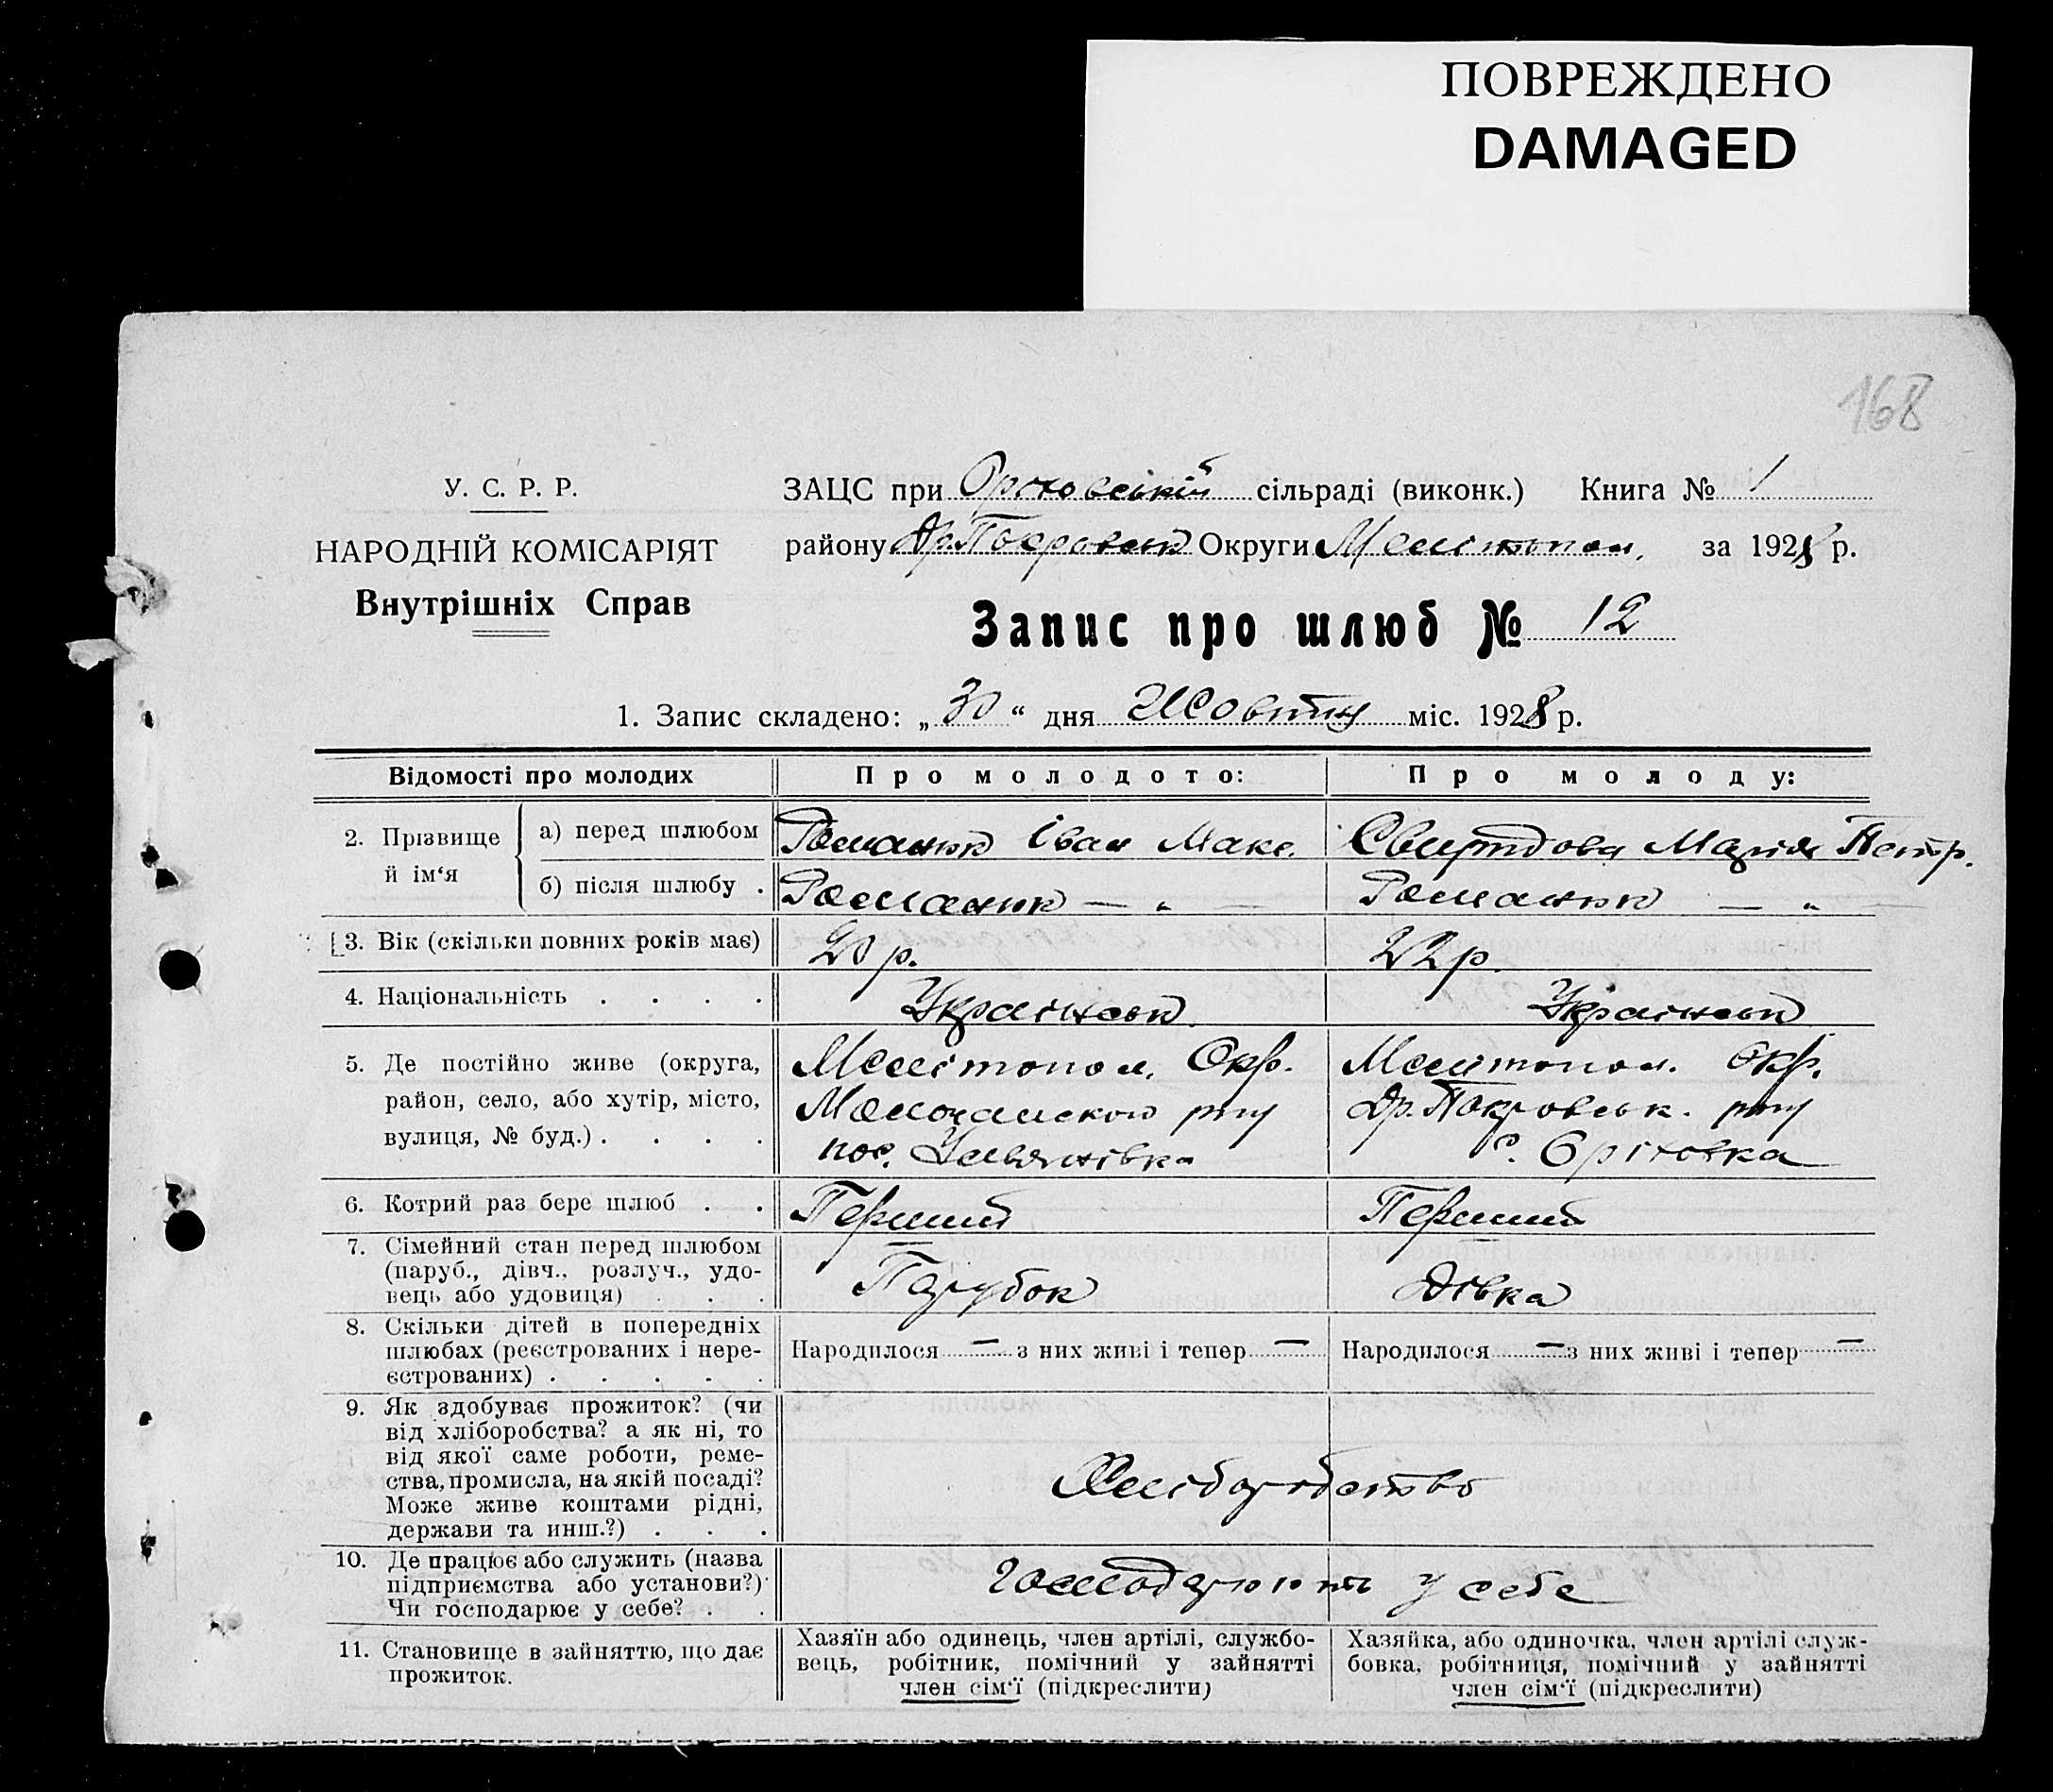 ПОВРЕЖДЕНО
DAMAGED
168
У. С. Р. Р.
НАРОДНІЙ КОМІСАРІЯТ
Внутрішніх Справ
ЗАЦС при Оріховській сільраді (виконк.) Книга № 1
району Др. Покровськ Округи Мелітопол. за 1928 р.
Запис про шлюб № 12
1. Запис складено: „ 30 “ дня Жовтня міс. 1928 р.
Відомості про молодих
Про молодого:
Про молоду:
2. Прізвище й ім‘я
а) перед шлюбом
Романюк Іван Макс.
Марія Петр.
б) після шлюбу .
Романюк — „ —
Романюк — „ —
3. Вік (скільки повних років має)
20 р.
22 р.
4. Національність . . . .
Українськ
Українськ
5. Де постійно живе (округа,
район, село, або хутір, місто,
вулиця, № буд.) . . . .
Мелітопол. Окр.
Молочанського р-ну
пос. Ульянівка
Мелітопол. Окр.
Др. Покровськ. р-ну
с. Оріховка
6. Котрий раз бере шлюб . .
Перший
Перший
7. Сімейний стан перед шлюбом
(паруб., дівч., розлуч., удо-
вець або удовиця) . . .
Парубок
Дівка
8. Скільки дітей в попередніх
шлюбах (реєстрованих і нере-
єстрованих) . . . . .
Народилося — з них живі і тепер —
Народилося — з них живі і тепер —
9. Як здобуває прожиток? (чи
від хліборобства? а як ні, то
від якої саме роботи, реме-
ства, промисла, на якій посаді?
Може живе коштами рідні,
держави та инш.?) . . .
Хліборобство
10. Де працює або служить (назва
підприємства або установи?)
Чи господарює у себе? . .
господарюють у себе
11. Становище в зайняттю, що дає
прожиток.
Хазяїн або одинець, член артілі, службо-
вець, робітник, помічний у зайнятті
член сім‘ї (підкреслити)
Хазяйка, або одиночка, член артілі служ-
бовка, робітниця, помічний у зайнятті
член сім‘ї (підкреслити)